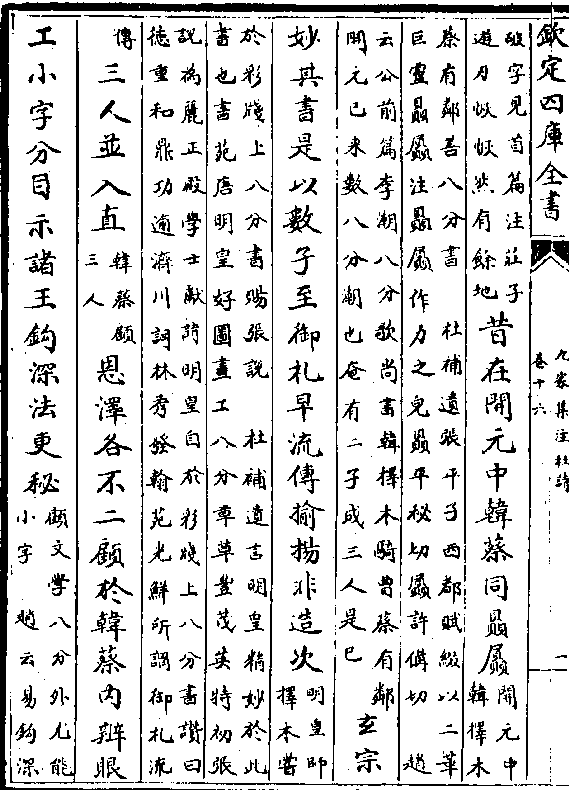 欽定四庫全書
九家集注杜詩
卷十六
一
破字見首篇注莊子
遊刃恢恢然有餘地
昔在開元中韓蔡同贔屭
開元中
韓擇木
蔡有鄰善八分書 杜補遺張平子西都賦綴以二華
巨靈贔屭注贔屭作力之皃贔平秘切屭許備切 趙
云公前篇李潮八分歌尚書韓擇木騎曹蔡有鄰
開元已来數八分潮也奄有二子成三人是已
玄宗
妙其書是以數子至御札早流傳揄揚非造次
明皇師
擇木嘗
於彩牋上八分書賜張説 杜補遺言明皇精妙於此
書也書苑唐明皇好圖畫工八分章草豐茂英特初張
説為麗正殿學士獻詩明皇自於彩牋上八分書讃曰
徳重和鼎功逾濟川詞林秀發翰苑光鮮所謂御札流
傳
三人並入直
韓蔡顧
三人
恩澤各不二顧於韓蔡内辨眼
工小字分日示諸王鈎深法更秘
顧文學八分外尤能
小字 趙云易鈎深